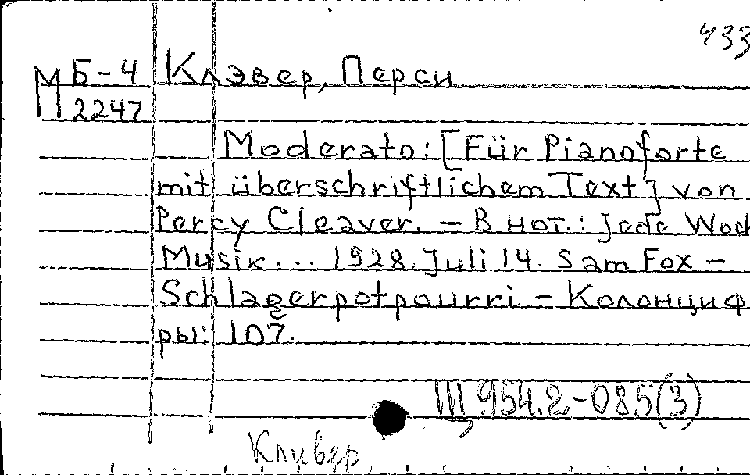 433
М Б-4 Клэвер, Перси
П 2247
Moderato: [Für Pianoforte
mit überschriftlichem Text] von
Percy Cleaver. – В нот.: Jede Woch
Musik... 1928. Juli 14. Sam Fox –
Schlagerpotpourri – Колонциф
ры: 107.
Щ 954.2-085(3)
Клувер